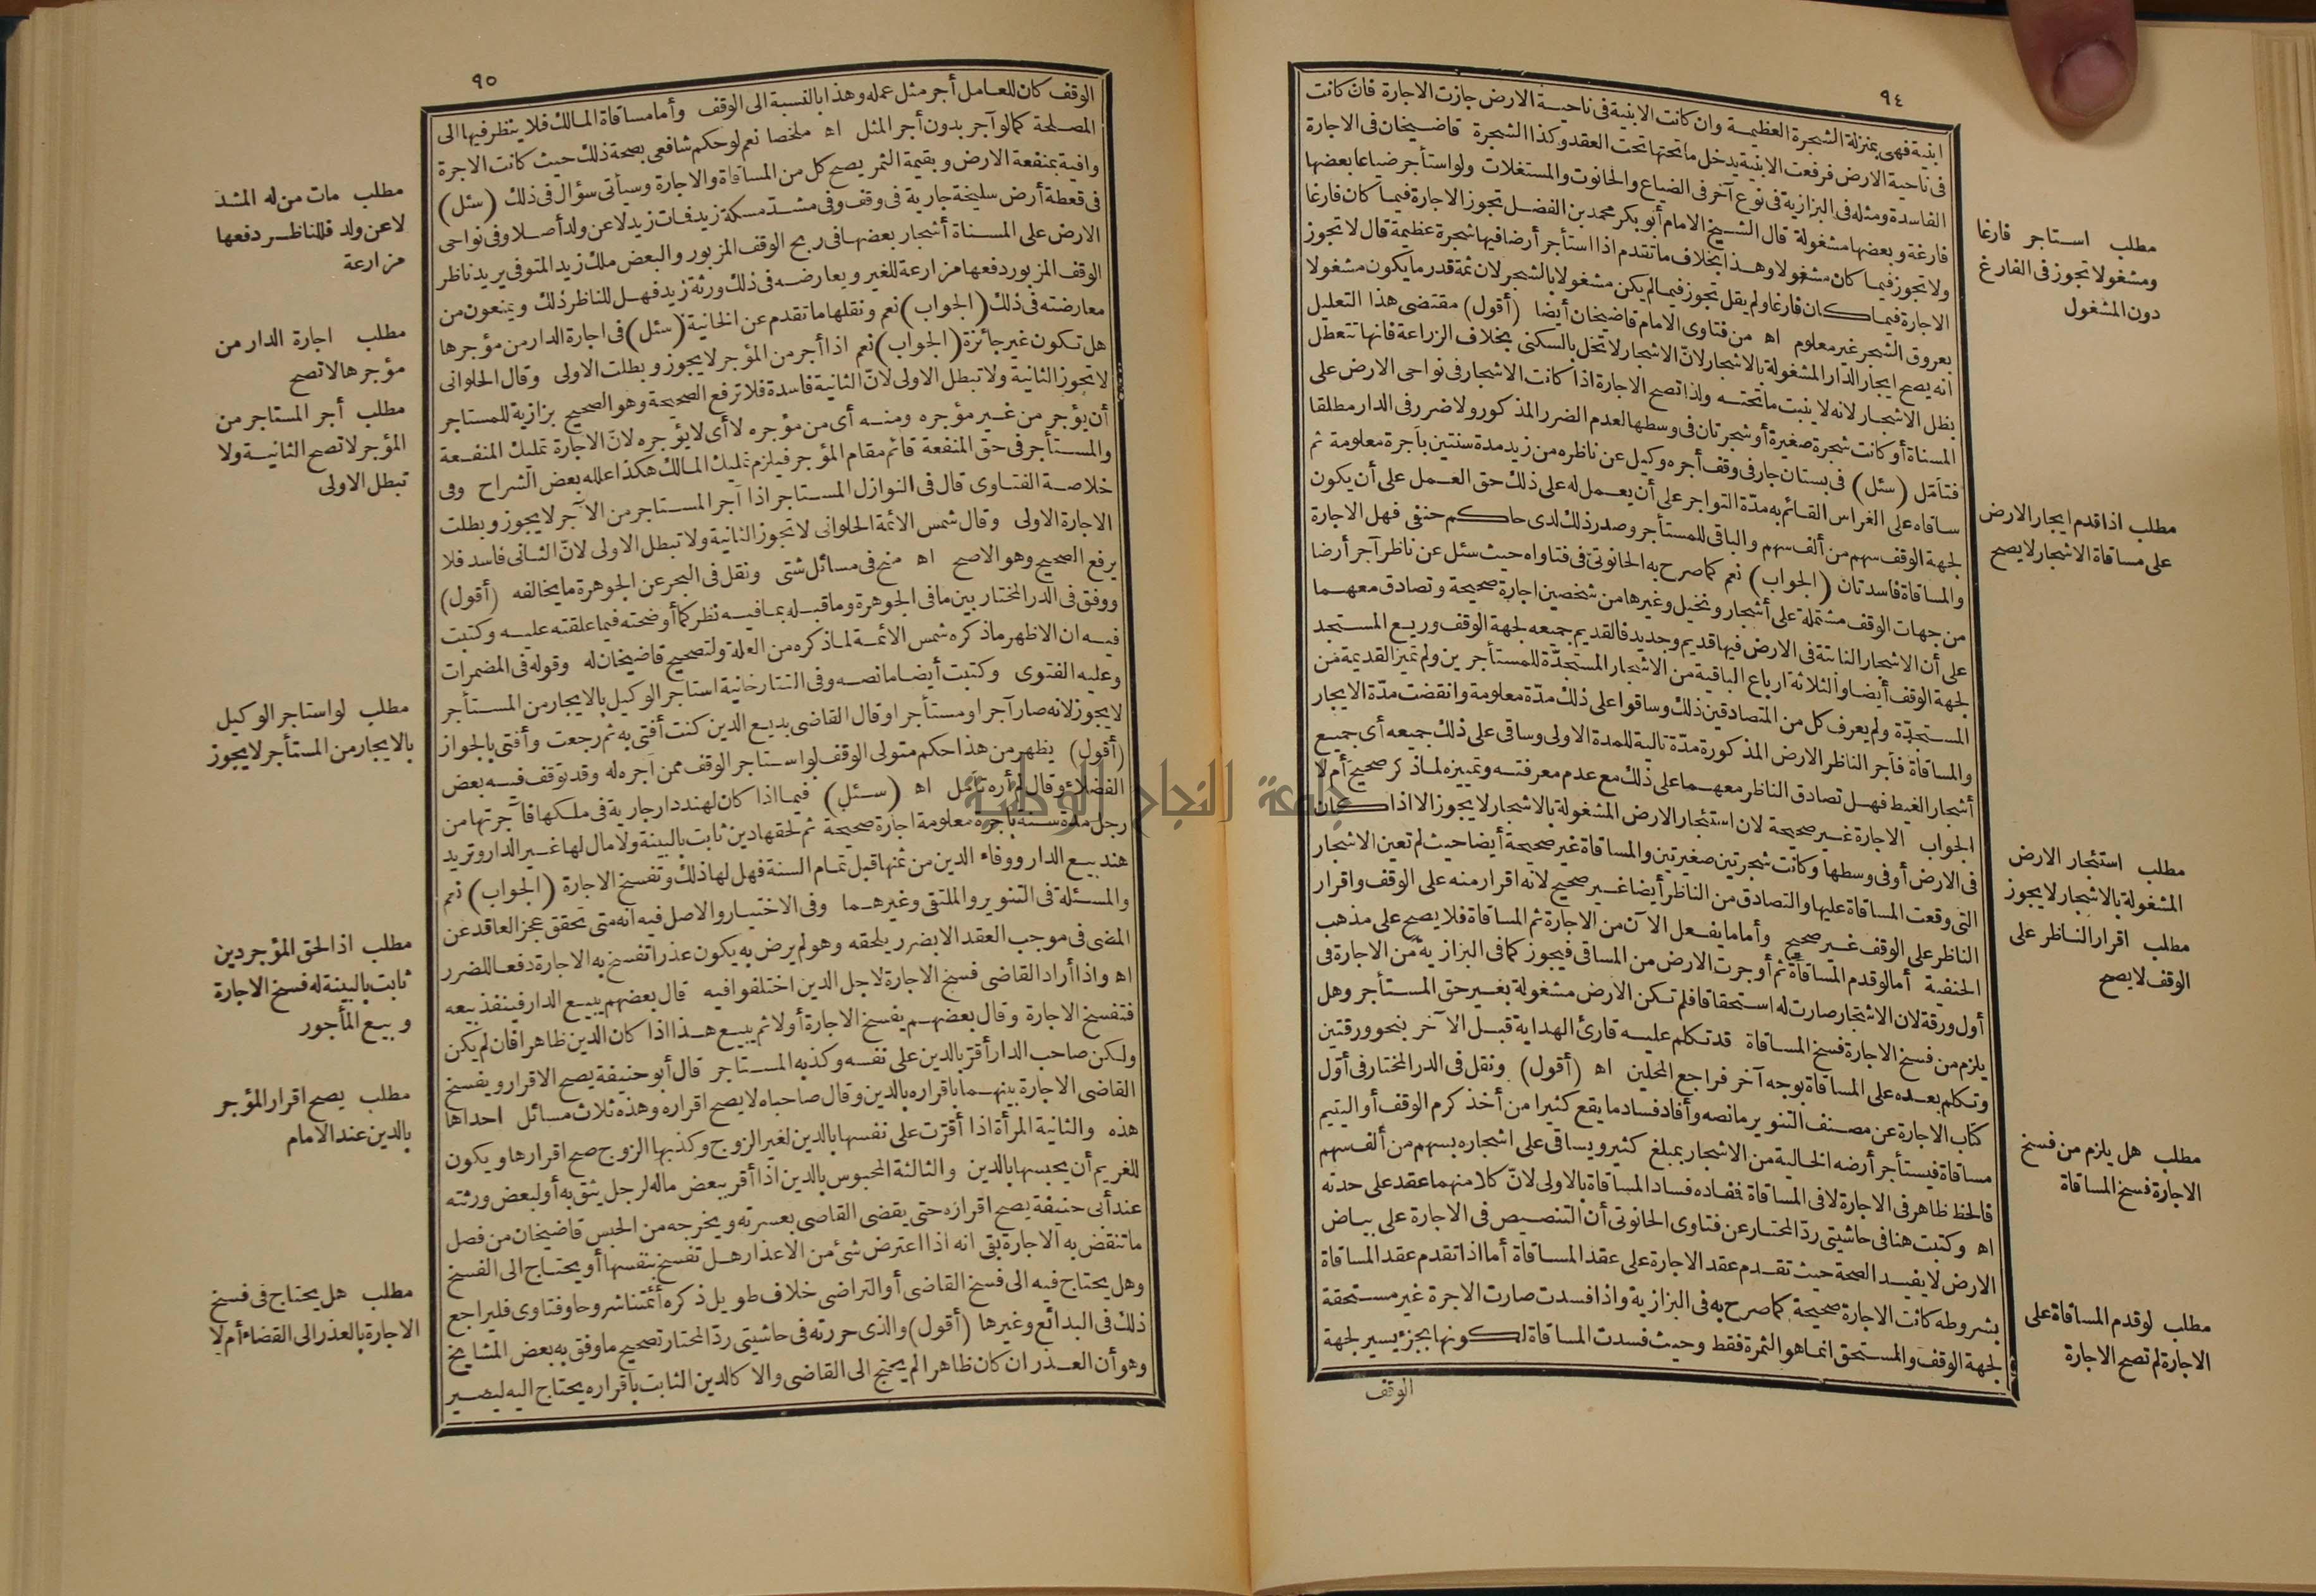 ٩٤
ابنية فهى بمنزلة الشجرة العظيمة وان كانت الابنية فى ناحية الارض جازت الاجارة فان كانت
فى ناحية الارض فرفعت الابنية يدخل ما تحتها تحت العقد وكذا الشجرة قاضيخان فى الاجارة
الفاسدة ومثله فى البزازية فى نوع آخر فى الضياع والحانوت والمستغلات ولو استأجر ضياعا بعضها
فارغة وبعضها مشغولة قال الشيخ الامام أبو بكر محمد بن الفضل تجوز الاجارة فيما كان فارغا
ولا تجوز فيما كان مشغولا وهذا بخلاف ما تقدم اذا استأجر أرضا فيها شجرة عظيمة قال لا تجوز
الاجارة فيما كان فارغا ولم يقل تجوز فيما لم يكن مشغولا بالشجر لان ثمة قدر ما يكون مشغولا
بعروق الشجر غير معلوم اه من فتاوى الامام قاضيخان أيضا (أقول) مقتضى هذا التعليل
انه يصح ايجار الدار المشغولة بالاشجار لانّ الاشجار لا تخل بالسكنى بخلاف الزراعة فانها تتعطل
بظل الاشجار لانه لا ينبت ما تحته ولذا تصح الاجارة اذا كانت الاشجار فى نواحى الارض على
المسناة أو كانت شجرة صغيرة أو شجرتان فى وسطها لعدم الضرر المذكور ولا ضرر فى الدار مطلقا
فتأمّل (سئل) فى بستان جار فى وقف أجره وكيل عن ناظره من زيد مدة سنتين بأجرة معلومة ثم
ساقاه على الغراس القائم به مدّة التواجر على أن يعمل له على ذلك حق العمل على أن يكون
لجهة الوقف سهم من ألف سهم والباقى للمستأجر وصدر ذلك لدى حاكم حنفى فهل الاجارة
والمساقاة فاسدتان (الجواب) نعم كما صرح به الحانوتى فى فتاواه حيث سئل عن ناظر آجر أرضا
من جهات الوقف مشتملة على أشجار ونخيل وغيرها من شخصين اجارة صحيحة وتصادق معهما
على أن الاشجار النابتة فى الارض فيها قديم وجديد فالقديم جميعه لجهة الوقف وريع المستجد
لجهة الوقف أيضا والثلاثة ارباع الباقية من الاشجار المستجدّة للمستأجرين ولم تميز القديمة من
المستجدّة ولم يعرف كل من المتصادقين ذلك وساقوا على ذلك مدّة معلومة وانقضت مدّة الايجار
والمساقاة فآجر الناظر الارض المذكورة مدّة تالية للمدة الاولى وساقى على ذلك جميعه أى جميع
أشجار الغيط فهل تصادق الناظر معهما على ذلك مع عدم معرفته وتمييزه لما ذكر صحيح أم لا
الجواب الاجارة غير صحيحة لان استئجار الارض المشغولة بالاشجار لا يجوز الا اذا كان
فى الارض أو فى وسطها وكانت شجرتين صغيرتين والمساقاة غير صحيحة أيضا حيث لم تعين الاشجار
التى وقعت المساقاة عليها والتصادق من الناظر أيضا غير صحيح لانه اقرار منه على الوقف واقرار
الناظر على الوقف غير صحيح وأما ما يفعل الآن من الاجارة ثم المساقاة فلا يصح على مذهب
الحنفية أما لو قدم المساقاة ثم أوجرت الارض من المساقى فيجوز كما فى البزازية من الاجارة فى
أول ورقة لان الاشجار صارت له استحقاقا فلم تكن الارض مشغولة بغير حق المستأجر وهل
يلزم من فسخ الاجارة فسخ المساقاة قد تكلم عليه قارئ الهداية قبل الآخر بنحو ورقتين
وتكلم بعده على المساقاة بوجه آخر فراجع المحلين اه (أقول) ونقل فى الدر المختار فى أوّل
كتاب الاجارة عن مصنف التنوير ما نصه وأفاد فساد ما يقع كثيرا من أخذ كرم الوقف أو اليتيم
مساقاة فيستأجر أرضه الخالية من الاشجار بمبلغ كثير ويساقى على اشجاره بسهم من ألف سهم
فالحظ ظاهر فى الاجارة لا فى المساقاة فمفاده فساد المساقاة بالاولى لانّ كلا منهما عقد على حدته
اه وكتبت هنا فى حاشيتى ردّ المحتار عن فتاوى الحانوتى أن التنصيص فى الاجارة على بياض
الارض لا يفيد الصحة حيث تقدم عقد الاجارة على عقد المساقاة أما اذا تقدم عقد المساقاة
بشروطه كانت الاجارة صحيحة كما صرح به فى البزازية واذا فسدت صارت الاجرة غير مستحقة
لجهة الوقف والمستحق انما هو الثمرة فقط وحيث فسدت المساقاة لكونها بجزء يسير لجهة
الوقف
مطلب استاجر فارغا
ومشغولا تجوز فى الفارغ
دون المشغول
مطلب اذا قدم ايجار الارض
على مساقاة الاشجار لا يصح
مطلب استئجار الارض
المشغولة بالاشجار لا يجوز
مطلب اقرار الناظر على
الوقف لا يصح
مطلب هل يلزم من فسخ
الاجارة فسخ المساقاة
مطلب لو قدم المساقاة على
الاجارة لم تصح الاجارة
٩٥
الوقف كان للعامل أجر مثل عمله وهذا بالنسبة الى الوقف وأما مساقاة المالك فلا ينظر فيها الى
المصلحة كما لو آجر بدون أجر المثل اه ملخصا نعم لو حكم شافعى بصحة ذلك حيث كانت الاجرة
وافية بمنفعة الارض وبقيمة الثمر يصح كل من المساقاة والاجارة وسيأتى سؤال فى ذلك (سئل)
فى قطعة أرض سليخة جارية فى وقف وفى مشدّ مسكة زيد فمات زيد لا عن ولد أصلا وفى نواحى
الارض على المسناة أشجار بعضها فى ربح الوقف المزبور والبعض ملك زيد المتوفى يريد ناظر
الوقف المزبور دفعها مزارعة للغير ويعارضه فى ذلك ورثة زيد فهل للناظر ذلك ويمنعون من
معارضته فى ذلك (الجواب) نعم ونقلها ما تقدم عن الخانية (سئل) فى اجارة الدار من مؤجرها
هل تكون غير جائزة (الجواب) نعم اذا أجر من المؤجر لا يجوز وبطلت الاولى وقال الحلوانى
لا تجوز الثانية ولا تبطل الاولى لانّ الثانية فاسدة فلا ترفع الصحيحة وهو الصحيح بزازية للمستاجر
أن يؤجر من غير مؤجره ومنه أى من مؤجره لا أى لا يؤجره لانّ الاجارة تمليك المنفعة
والمستأجر فى حق المنفعة قائم مقام المؤجر فيلزم تمليك المالك هكذا علله بعض الشراح وفى
خلاصة الفتاوى قال فى النوازل المستاجر اذا آجر المستاجر من الآجر لا يجوز وبطلت
الاجارة الاولى وقال شمس الائمة الحلوانى لا تجوز الثانية ولا تبطل الاولى لانّ الثانى فاسد فلا
يرفع الصحيح وهو الاصح اه منح فى مسائل شتى ونقل فى البحر عن الجوهرة ما يخالفه (أقول)
ووفق فى الدر المختار بين ما فى الجوهرة وما قبله بما فيه نظر كما أوضحته فيما علقته عليه وكتبت
فيه ان الاظهر ما ذكره شمس الائمة لما ذكره من العلة ولتصحيح قاضيخان له وقوله فى المضمرات
وعليه الفتوى وكتبت أيضا ما نصه وفى التتارخانية استاجر الوكيل بالايجار من المستأجر
لا يجوز لانه صار آجرا ومستأجرا وقال القاضى بديع الدين كنت أفتى به ثم رجعت وأفتى بالجواز
(أقول) يظهر من هذا حكم متولى الوقف لو استاجر الوقف ممن اجره له وقد توقف فيه بعض
الفضلاء وقال لم أره تأمّل اه (سئل) فيما اذا كان لهند دار جارية فى ملكها فآجرتها من
رجل مدّة سنة بأجرة معلومة اجارة صحيحة ثم لحقها دين ثابت بالبينة ولا مال لها غير الدار وتريد
هند بيع الدار ووفاء الدين من ثمنها قبل تمام السنة فهل لها ذلك وتفسخ الاجارة (الجواب) نعم
والمسئلة فى التنوير والملتقى وغيرهما وفى الاختيار والاصل فيه انه متى تحقق عجز العاقد عن
المضى فى موجب العقد الا بضرر يلحقه وهو لم يرض به يكون عذرا تفسخ به الاجارة دفعا للضرر
اه واذا أراد القاضى فسخ الاجارة لاجل الدين اختلفوا فيه قال بعضهم يبيع الدار فينفذ بيعه
فتفسخ الاجارة وقال بعضهم يفسخ الاجارة أولا ثم يبيع هذا اذا كان الدين ظاهرا فان لم يكن
ولكن صاحب الدار أقرّ بالدين على نفسه وكذبه المستاجر قال أبو حنيفة يصح الاقرار ويفسخ
القاضى الاجارة بينهما باقراره بالدين وقال صاحباه لا يصح اقراره وهذه ثلاث مسائل احداها
هذه والثانية المرأة اذا أقرّت على نفسها بالدين لغير الزوج وكذبها الزوج صح اقرارها ويكون
للغريم أن يحبسها بالدين والثالثة المحبوس بالدين اذا أقر ببعض ماله لرجل يثق به أو لبعض ورثته
عند أبى حنيفة يصح اقراره حتى يقضى القاضى بعسرته ويخرجه من الحبس قاضيخان من فصل
ما تنقض به الاجارة بقى انه اذا اعترض شئ من الاعذار هل تفسخ بنفسها أو يحتاج الى الفسخ
وهل يحتاج فيه الى فسخ القاضى أو التراضى خلاف طويل ذكره أئمتنا شروحا وفتاوى فليراجع
ذلك فى البدائع وغيرها (أقول) والذى حررته فى حاشيتى ردّ المحتار تصحيح ما وفق به بعض المشايخ
وهو أن العذر ان كان ظاهرا لم يحتج الى القاضى والا كالدين الثابت باقراره يحتاج اليه ليصير
مطلب مات من له المشدّ
لا عن ولد فللناظر دفعها
مزارعة
مطلب اجارة الدار من
مؤجرها لا تصح
مطلب أجر المستاجر من
المؤجر لا تصح الثانية ولا
تبطل الاولى
مطلب لو استاجر الوكيل
بالايجار من المستأجر لا يجوز
مطلب اذا لحق المؤجر دين
ثابت بالبينة له فسخ الاجارة
وبيع المأجور
مطلب يصح اقرار المؤجر
بالدين عند الامام
مطلب هل يحتاج فى فسخ
الاجارة بالعذر الى القضاء أم لا
جامعة النجاح الوطنية